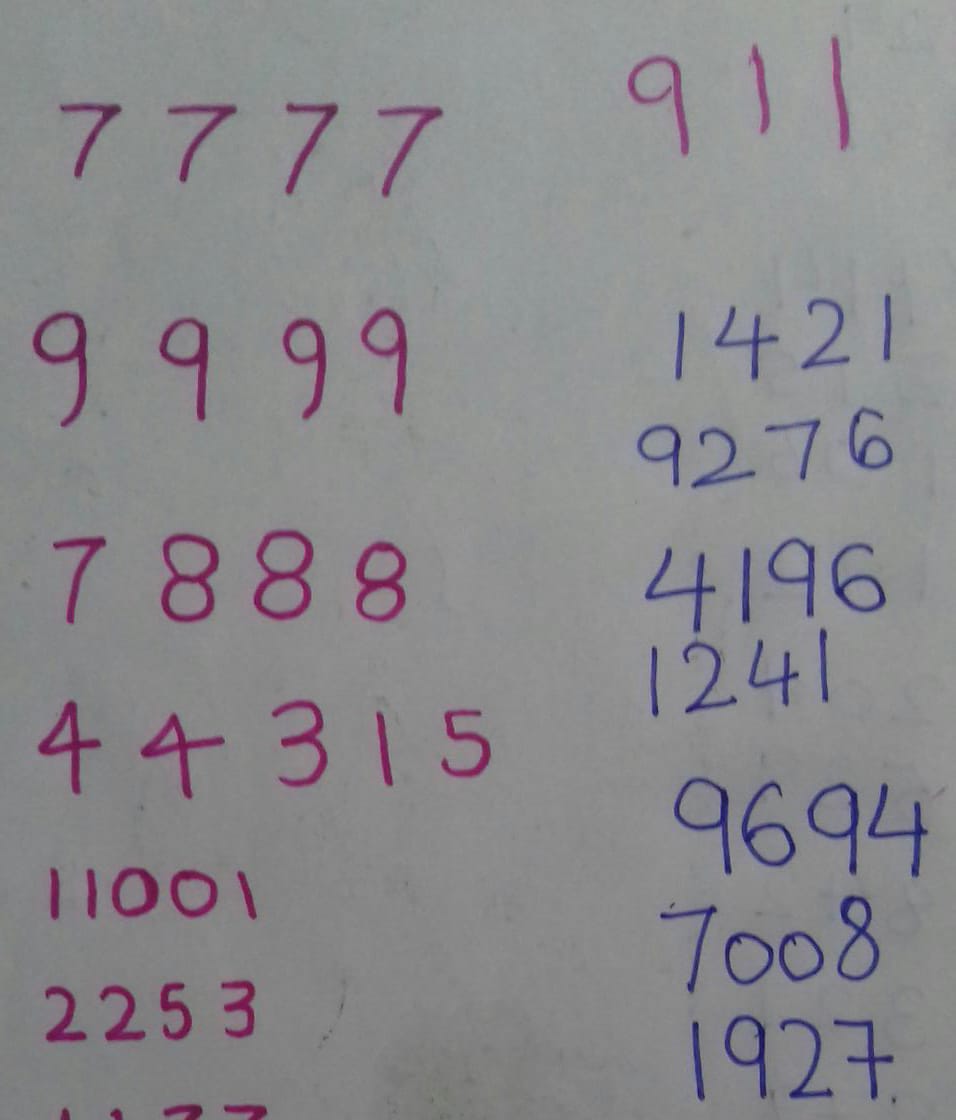 7 7 7 7
9 9 9 9
7 8 8 8
4 4 3 1 5
11001
2253
9 1 1
1421
9276
4196
1241
9694
7008
1927